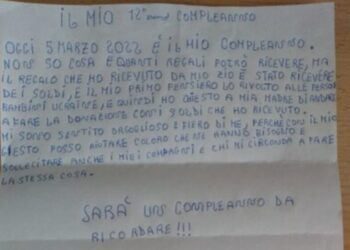 IL MIO 12° anno COMPLEANNO
OGGI 5 MARZO 2022 È IL MIO COMPLEANNO.
NON SO COSA E QUANTI REGALI POTRÒ RICEVERE, MA
IL REGALO CHE HO RICEVUTO DA MIO ZIO È STATO RICEVERE
DEI SOLDI, E IL MIO PRIMO PENSIERO LO RIVOLTO ALLE PERSONE
BAMBINI UCRAINE, E QUINDI HO CHIESTO A MIA MADRE DI ANDARE
A FARE LA DONAZIONE CON I SOLDI CHE HO RICEVUTO.
MI SONO SENTITO ORGOGLIOSO E FIERO DI ME, PERCHÉ CON IL MIO
GESTO POSSO AIUTARE COLORO CHE NE HANNO BISOGNO E
SOLLECITARE ANCHE I MIEI COMPAGNI E CHI MI CIRCONDA A FARE
LA STESSA COSA.
SARÀ UNS COMPLEANNO DA
RICORDARE!!!